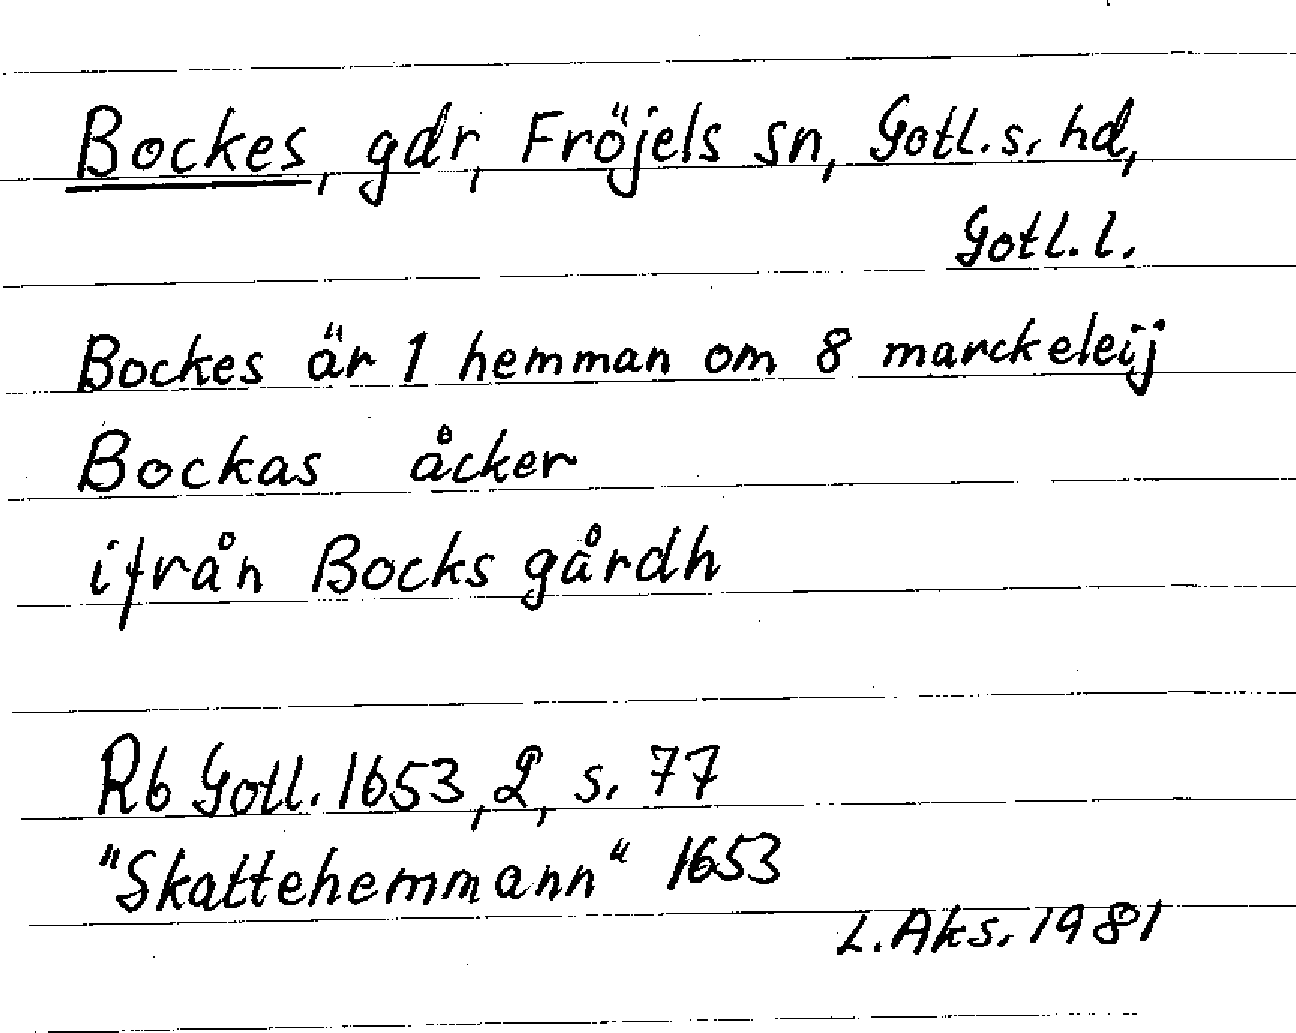 Bockes, gdr, Fröjels sn, Gotl. s. hd,
Gotl. l.
Bockes är 1 hemman om 8 marckeleij
Bockas åcker
ifrån Bocks gårdh
Rb Gotl. 1653, 2, s. 77
"Skattehemmann" 1653
L. Aks. 1981